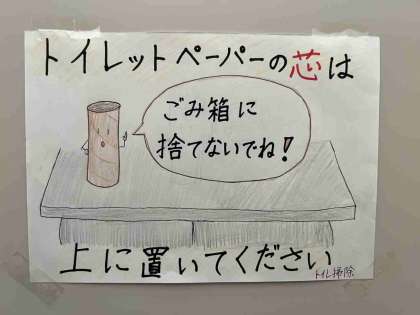 トイレットペーパーの芯は
ごみ箱に
捨てないでね!
上に置いてください
トイレ掃除